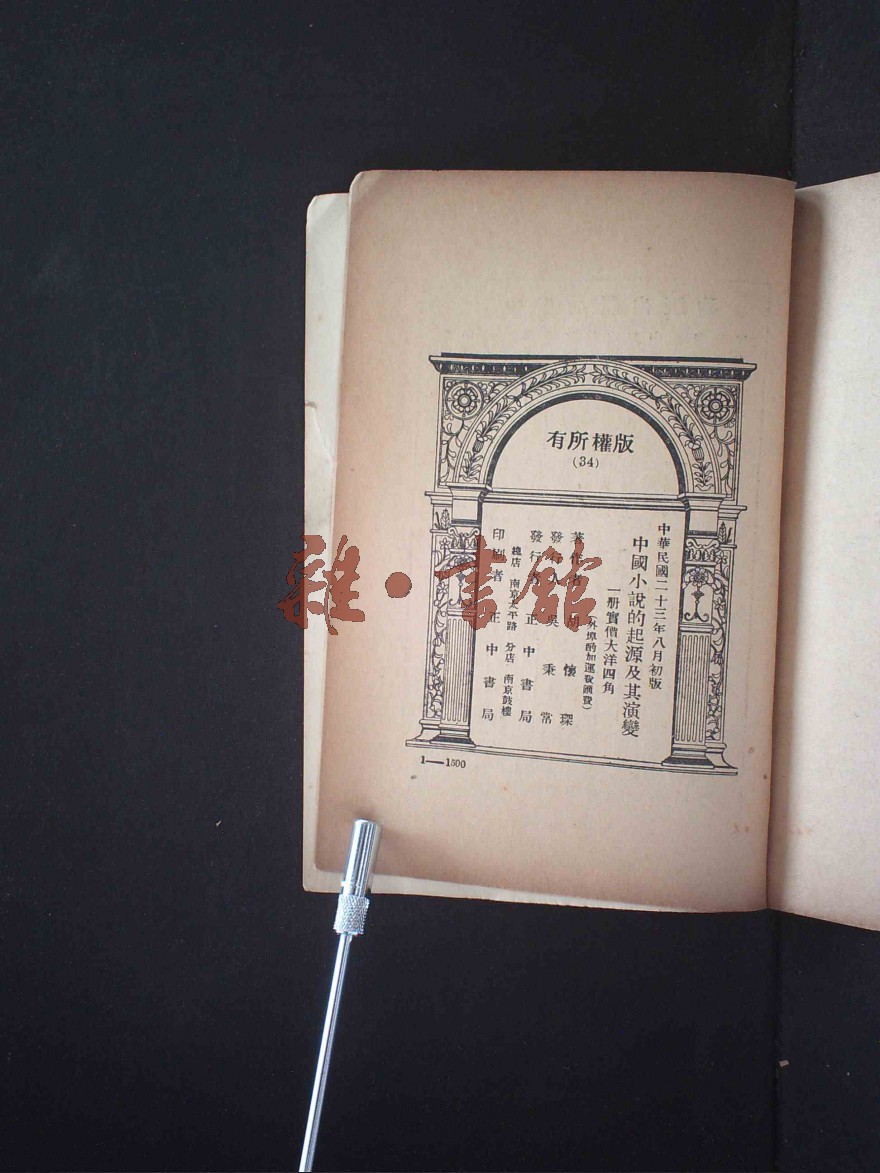 版權所有
(34)
中華民國二十三年八月初版
中國小說的起源及其演變
一册實價大洋四角
(外埠酌加運費匯費)
著作者 胡懷琛
發行人 吳秉常
發行者 正中書局
總店 南京太平路 分店 南京鼓樓
印刷者 正中書局
1—1500
雜·書館